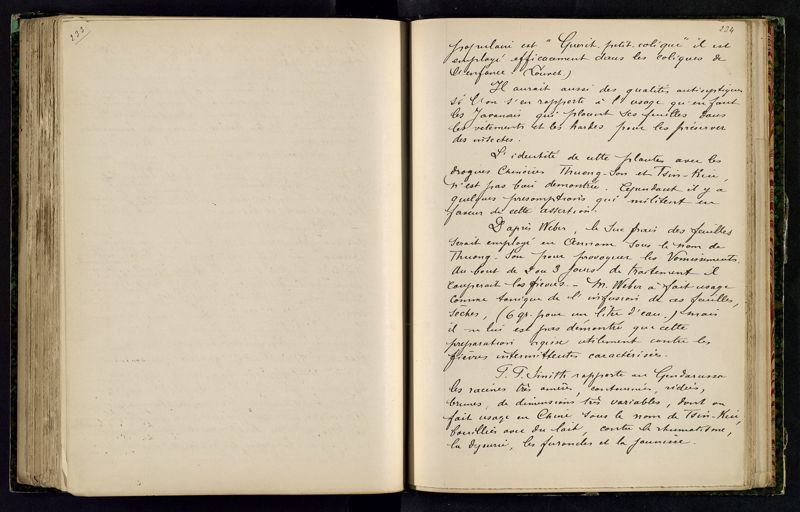 233
234
populaire est "Guérit-petit-colique" il est
employé efficacement dans les coliques de
l'enfance (Louvet)
Il aurait aussi des qualités antiseptiques
si l'on s'en rapporte à l'usage qu'en font
les Javanais qui placent ses feuilles dans
les vêtements et les hardes pour les préserver
des insectes.
L'identité de cette plante avec les
drogues Chinoises Thuong-Son et Tsin-Kiu,
n'est pas bien démontrée. Cependant il y a
quelques présomptions qui militent en
faveur de cette assertion.
D'après Weber, le Suc frais des feuilles
serait employé en Annam sous le nom de
Thuong-Son pour provoquer les Vomissements.
Au bout de 2 ou 3 jours de traitement il
couperait les fièvres. - M. Weber a fait usage
comme tonique de l'infusion de ces feuilles,
sèches, (6 gr. pour un litre d'eau.) mais
il ne lui est pas démontré que cette
préparation agisse utilement contre les
fièvres intermittentes caractérisées.
F. P. Smith rapporte au Gendarussa
les racines très amères, contournées, ridées,
brunes, de dimensions très variables, dont on
fait usage en Chine sous le nom de Tsin-Kiu,
bouillies avec du lait, contre le rhumatisme,
la dysurie, les furoncles et la jaunisse.